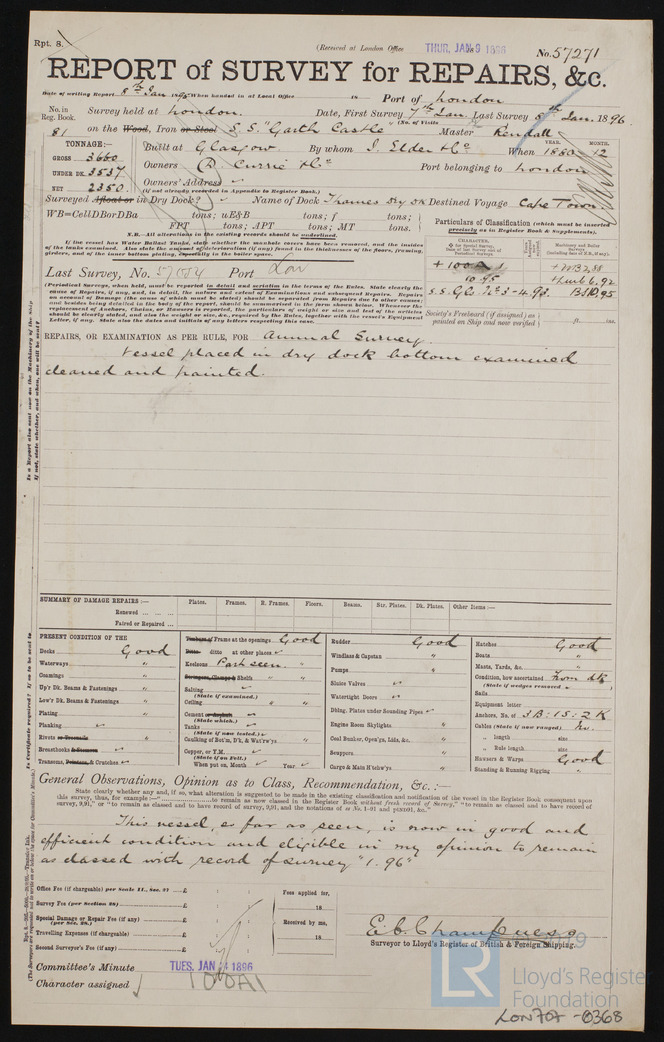 Rpt. 8.
(Received at London Office THUR. JAN 9 1896
No. 57271
REPORT of SURVEY for REPAIRS, &c.
Date of writing Report 8th Jan 1896 When handed in at Local Office 18 Port of London
No. in Reg. Book. Survey held at London. Date, First Survey 7th Jan Last Survey 8th Jan. 1896
(No. of Visits
81 on the Wood, Iron or Steel S.S. "Garth Castle" Master Rendall
TONNAGE:—
GROSS 3660
UNDER DK. 3537
NET 2350
Built at Glasgow By whom J. Elder & Co When YEAR. 1880 MONTH. 12
Owners D. Currie & Co Port belonging to London
Owners' Address
(if not already recorded in Appendix to Register Book.)
Surveyed Afloat or in Dry Dock? Name of Dock Thames Dry Dk Destined Voyage Cape Town
WB=CellDBorDBa tons; uE&B tons; f tons;
FPT tons; APT tons; MT tons.
N.B.—All alterations in the existing records should be underlined.
If the vessel has Water Ballast Tanks, state whether the manhole covers have been removed, and the insides
of the tanks examined. Also state the amount of deterioration (if any) found in the thicknesses of the floors, framing,
girders, and of the inner bottom plating, especially in the boiler space.
Particulars of Classification (which must be inserted
precisely as in Register Book & Supplements).
CHARACTER.
Machinery and Boiler Surveys
+100A1
10.95
S.S. Gls No 3-4.93.
+Lmb 6.92
BS10.95
Last Survey, No. 57054 Port Lon
(Periodical Surveys, when held, must be reported in detail and seriatim in the terms of the Rules. State clearly the
cause of Repairs, if any, and, in detail, the nature and extent of Examinations and subsequent Repairs. Repairs
on account of Damage (the cause of which must be stated) should be separated from Repairs due to other causes;
and besides being detailed in the body of the report, should be summarized in the form shown below. Whenever the
replacement of Anchors, Chains, or Hawsers is reported, the particulars of weight or size and test of the articles
should be clearly stated, and also the weight or size, &c., required by the Rules, together with the vessel's Equipment
Letter, if any. State also the dates and initials of any letters respecting this case.
Society's Freeboard (if assigned) as
painted on Ship and now verified ft. ins.
REPAIRS, OR EXAMINATION AS PER RULE, FOR Annual Survey.
Vessel placed in dry dock bottom examined
cleaned and painted.
SUMMARY OF DAMAGE REPAIRS:—
Plates. Frames. R. Frames. Floors. Beams. Str. Plates. Dk. Plates. Other Items:—
Renewed
Faired or Repaired
PRESENT CONDITION OF THE
Decks Good
Waterways "
Coamings "
Up'r Dk. Beams & Fastenings "
Low'r Dk. Beams & Fastenings "
Plating "
Planking
Rivets or Treenails "
Breasthooks & Stemson
Transoms, Pointers, & Crutches
Timbers of Frame at the openings Good
Ditto ditto at other places
Keelsons Part seen. "
Stringers, Clamps & Shelfs " "
Salting
(State if examined.)
Ceiling " "
Cement or Asphalt
(State which.)
Tanks
(State if now tested.)
Caulking of Bot'm, D'k, & Wat'rw'ys "
Copper, or Y.M.
(State if on Felt.)
When put on, Month Year
Rudder Good
Windlass & Capstan "
Pumps "
Sluice Valves
Watertight Doors
Dblng. Plates under Sounding Pipes
Engine Room Skylights "
Coal Bunker, Open'gs, Lids, &c. "
Scuppers "
Cargo & Main H'tchw'ys "
Hatches Good
Boats "
Masts, Yards, &c. "
Condition, how ascertained From dk
(State if wedges removed
Sails
Equipment letter
Anchors, No. of 3B: 1S: 2K
Cables (State if now ranged) No.
" length size
" Rule length size
Hawsers & Warps Good
Standing & Running Rigging "
General Observations, Opinion as to Class, Recommendation, &c.:—
State clearly whether any, and if so, what alteration is suggested to be made in the existing classification and notification of the vessel in the Register Book consequent upon
this survey, thus, for example:—" to remain as now classed in the Register Book without fresh record of Survey," "to remain as classed and to have record of
survey, 9,91," or "to remain as classed and to have record of survey, 9,91, and the notations of ss No. 1-91 and PtND91, &c."
This vessel, as far as seen, is now in good and
efficient condition and eligible in my opinion to remain
as classed with record of survey "1.96"
Office Fee (if chargeable) per Scale 11., Sec. 27 £
Survey Fee (per Section 28) £
Special Damage or Repair Fee (if any) £
(per Sec. 28.)
Travelling Expenses (if chargeable) £
Second Surveyor's Fee (if any) £
Fees applied for,
18
Received by me,
18
Surveyor to Lloyd's Register of British & Foreign Shipping.
Committee's Minute TUES. JAN 14 1896
Character assigned 100A1
LR
Lloyd's Register
Foundation
LON707-0368